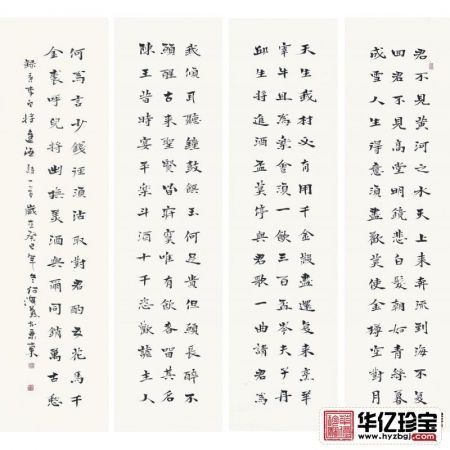 君不見黃河之水天上來奔流到海不復
回君不見高堂明鏡悲白髮朝如青絲暮
成雪人生得意須盡歡莫使金樽空對月
天生我材必有用千金散盡還復來烹羊
宰牛且為樂會須一飲三百盃岑夫子丹
邱生將進酒盃莫停與君歌一曲請君為
我傾耳聽鐘鼓饌玉何足貴但願長醉不
願醒古來聖賢皆寂寞唯有飲者留其名
陳王昔時宴平樂斗酒十千恣歡謔主人
何為言少錢徑須沽取對君酌五花馬千
金裘呼兒將出換美酒與爾同銷萬古愁
李白將進酒詩一首歲在癸巳年冬
华亿珍宝
www.hyzbgj.com